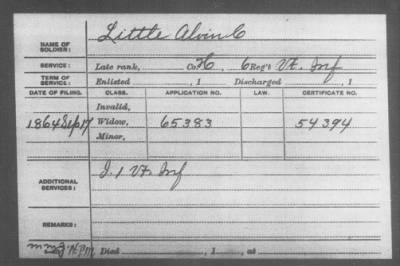 NAME OF SOLDIER: Little Alvin C
SERVICE: Late rank, Co. H, 6 Reg't Vt. Inf
TERM OF SERVICE: Enlisted , 1 Discharged , 1
DATE OF FILING. CLASS. APPLICATION NO. LAW. CERTIFICATE NO.
Invalid,
1864 Sep 17 Widow, 65383 54394
Minor,
ADDITIONAL SERVICES: I. 1 Vt. Inf
REMARKS:
Died , 1 , at